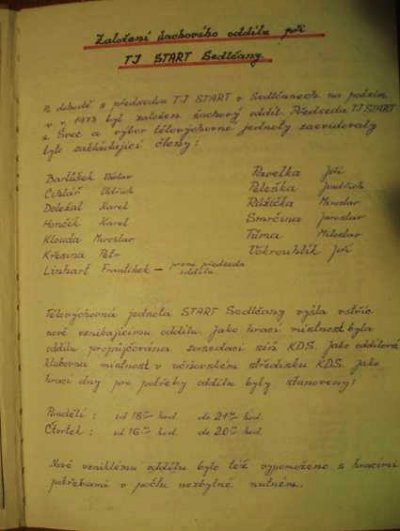 Založení šachového oddílu při
TJ START Sedlčany
Z dohodě s předsedou TJ START v Sedlčanech na podzim
v r. 1973 byl založen šachový oddíl. Předseda TJ START
s. Švec a výbor tělovýchovné jednoty zaevidovaly
tyto zakládající členy:
Bartůšek Václav Pavelka Jiří
Cihlář Oldřich Pelzáka Jindřich
Doležal Karel Růžička Miroslav
Hončík Karel Smrčina Jaroslav
Klouda Miroslav Tůma Miloslav
Křesina Petr Vokrouhlík Jiří
Linhart František – první předseda
oddílu
Tělovýchovná jednota START Sedlčany vyšla vstříc
nově vznikajícímu oddílu. Jako hrací místnost byla
oddílu propůjčována zasedací síň KDS. Jako oddílová
klubovna místnost v učňovském středisku KDS. Jako
hrací dny pro potřeby oddílu byly stanoveny:
Pondělí: od 18 hod. do 21 hod.
Čtvrtek: od 16 hod. do 20 hod.
Nově vzniklému oddílu bylo též vypomoženo s hracími
potřebami v počtu nezbytně nutném.